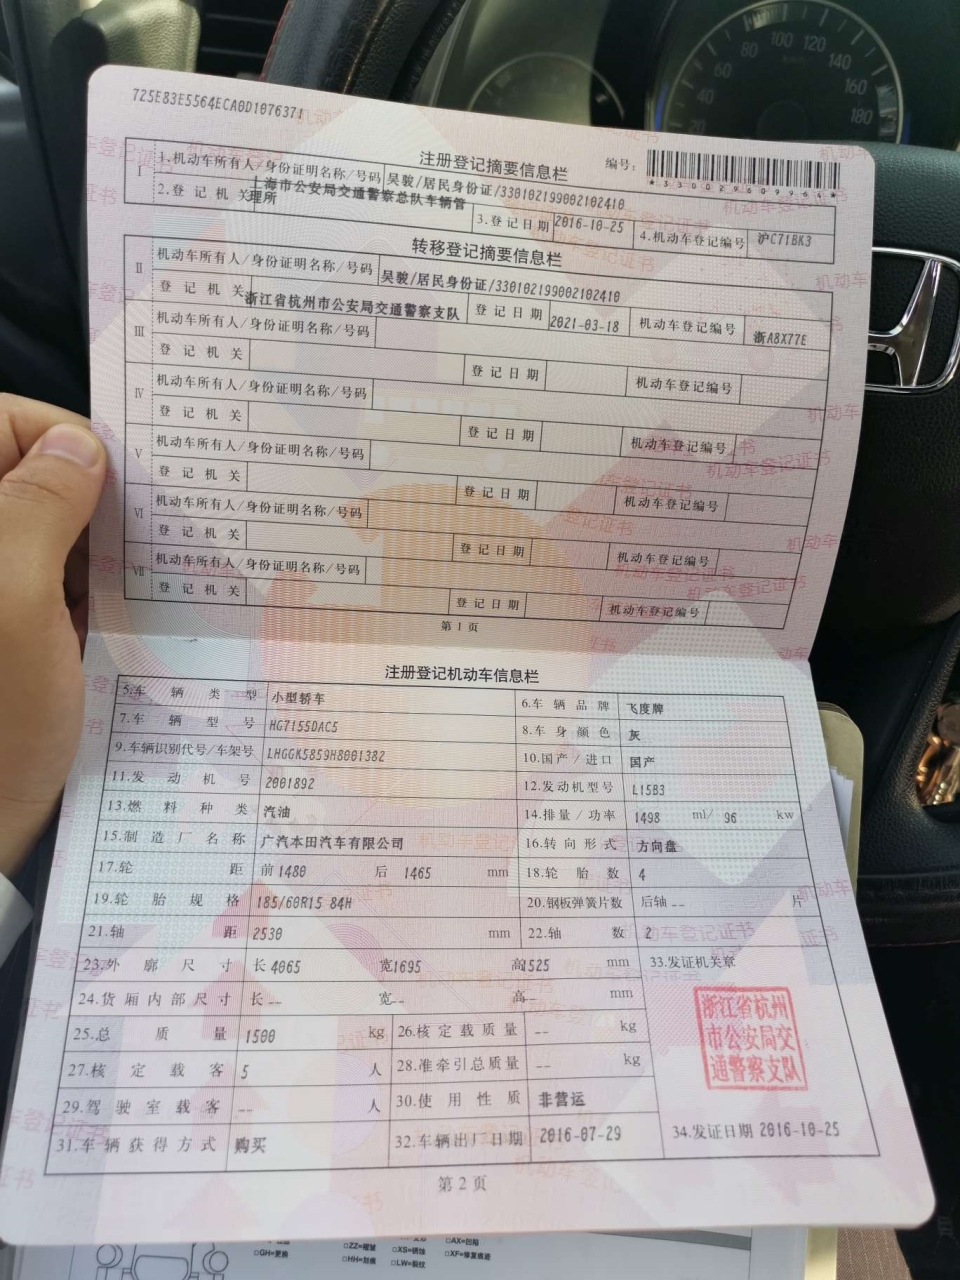 725E83E5564ECA0D1076371
注册登记摘要信息栏
编号:
*330029609964*
I 1.机动车所有人/身份证明名称/号码 吴骏/居民身份证/330102199002102410
2.登记机关 上海市公安局交通警察总队车辆管理所 3.登记日期 2016-10-25 4.机动车登记编号 沪C71BK3
转移登记摘要信息栏
II 机动车所有人/身份证明名称/号码 吴骏/居民身份证/330102199002102410
登记机关 浙江省杭州市公安局交通警察支队 登记日期 2021-03-18 机动车登记编号 浙A8X77E
III 机动车所有人/身份证明名称/号码
登记机关 登记日期 机动车登记编号
IV 机动车所有人/身份证明名称/号码
登记机关 登记日期 机动车登记编号
V 机动车所有人/身份证明名称/号码
登记机关 登记日期 机动车登记编号
VI 机动车所有人/身份证明名称/号码
登记机关 登记日期 机动车登记编号
VII 机动车所有人/身份证明名称/号码
登记机关 登记日期 机动车登记编号
第1页
注册登记机动车信息栏
5.车辆类型 小型轿车 6.车辆品牌 飞度牌
7.车辆型号 HG7155DAC5 8.车身颜色 灰
9.车辆识别代号/车架号 LHGGK5859H8001382 10.国产/进口 国产
11.发动机号 2001892 12.发动机型号 L15B3
13.燃料种类 汽油 14.排量/功率 1498 ml/ 96 kw
15.制造厂名称 广汽本田汽车有限公司 16.转向形式 方向盘
17.轮距 前1480 后 1465 mm 18.轮胎数 4
19.轮胎规格 185/60R15 84H 20.钢板弹簧片数 后轴-- 片
21.轴距 2530 mm 22.轴数 2
23.外廓尺寸 长4065 宽1695 高1525 mm 33.发证机关章
24.货厢内部尺寸 长-- 宽-- 高-- mm
浙江省杭州
市公安局交
通警察支队
25.总质量 1500 kg 26.核定载质量 -- kg
27.核定载客 5 人 28.准牵引总质量 -- kg
29.驾驶室载客 -- 人 30.使用性质 非营运
31.车辆获得方式 购买 32.车辆出厂日期 2016-07-29 34.发证日期 2016-10-25
第2页
□GH=更换 □ZZ=褶皱 □XS=锈蚀 □AX=凹陷
□HH=划痕 □LW=裂纹 □XF=修复痕迹
40 60 80 100 120 140 160 180